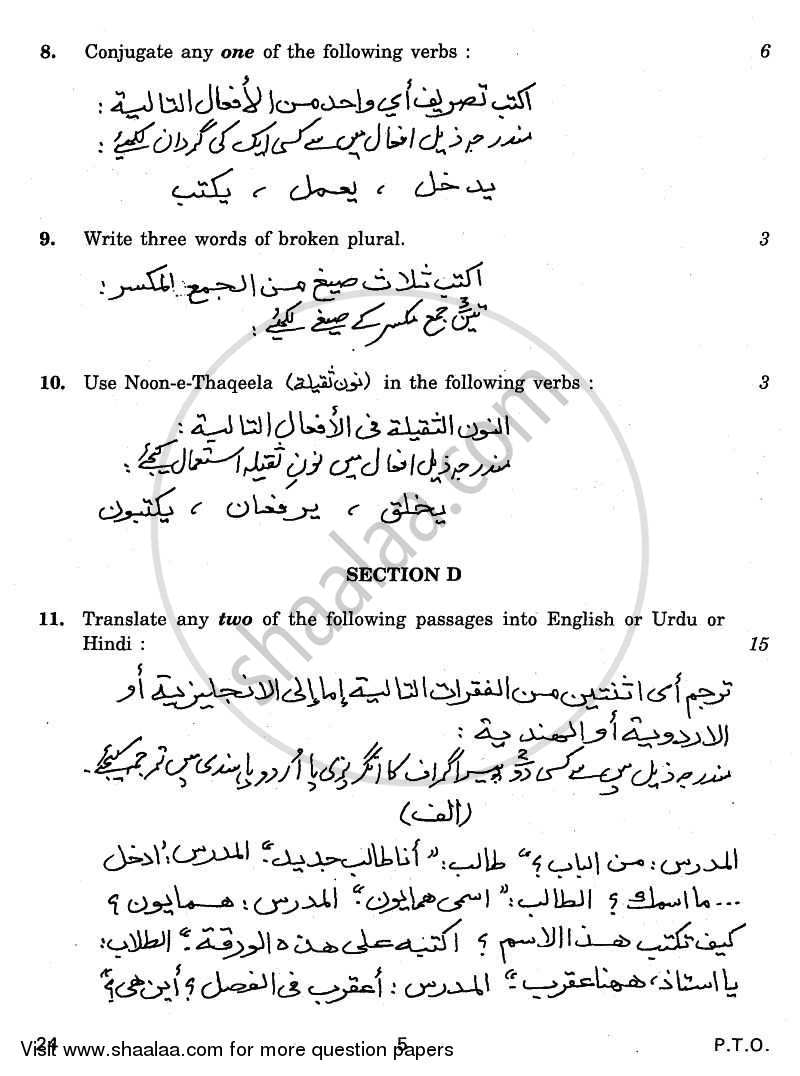 8. Conjugate any one of the following verbs : 6
اكتب تصريف أي واحد من الأفعال التالية :
مندرجہ ذیل افعال میں سے کسی ایک کی گردان لکھئے :
يدخل ، يعمل ، يكتب
9. Write three words of broken plural. 3
اكتب ثلاث صيغ من الجمع المكسر :
تین 3 جمع مکسر کے صیغے لکھئے :
10. Use Noon-e-Thaqeela (نون ثقيلة) in the following verbs : 3
النون الثقيلة فى الأفعال التالية :
مندرجہ ذیل افعال میں نونِ ثقیلہ استعمال کیجئے :
يخلق ، يرفعان ، يكتبون
SECTION D
11. Translate any two of the following passages into English or Urdu or
Hindi : 15
ترجم أى اثنتين من الفقرات التالية إما إلى الانجليزية أو
الاردوية أو الهندية :
مندرجہ ذیل میں سے کسی دو 2 پیراگراف کا انگریزی یا اُردو یا ہندی میں ترجمہ کیجئے ۔
(الف)
المدرس : من بالباب ؟" طالب :" أنا طالب جديد" المدرس :" ادخل
... ما اسمك ؟ الطالب :" اسمى همايون" المدرس : همايون ؟
كيف تكتب هذا الاسم ؟ اكتبه على هذه الورقة" الطلاب :
يا استاذ، ههنا عقرب" المدرس : أعقرب فى الفصل ؟ أين هى ؟"
24 5 P.T.O.
Visit www.shaalaa.com for more question papers
shaalaa.com